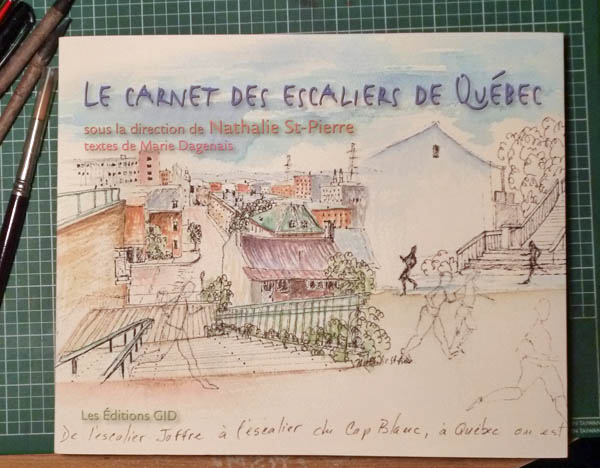 LE CARNET DES ESCALIERS DE QUÉBEC
sous la direction de Nathalie St-Pierre
textes de Marie Dagenais
Les Éditions GID
De l'escalier Joffre à l'escalier du Cap Blanc, à Québec on est